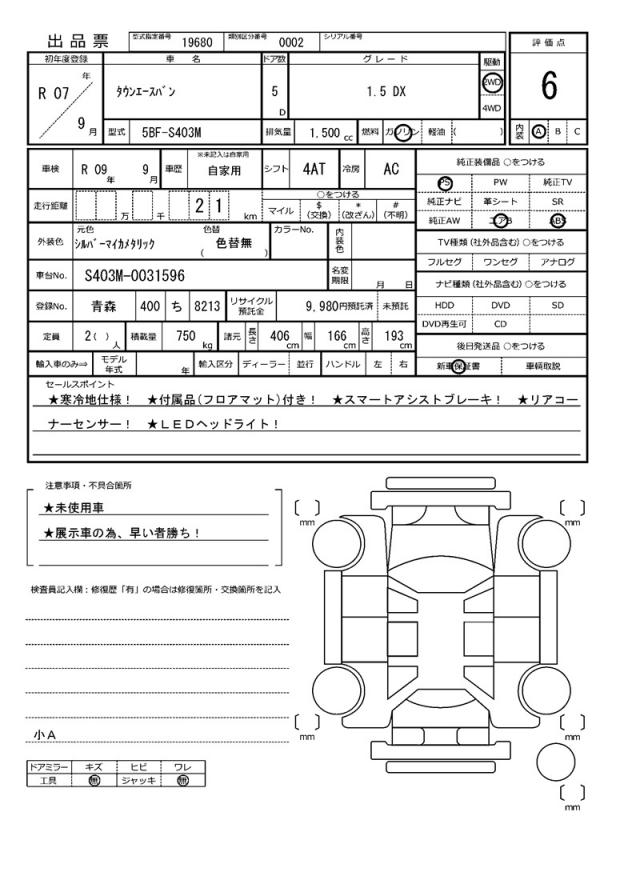 出 品 票
型式指定番号 19680 類別区分番号 0002 シリアル番号
評 価 点
初年度登録 車 名 ドア数 グ レ ー ド 駆動
R 07 年 9 月
ﾀｳﾝｴｰｽﾊﾞﾝ
5 D
1.5 DX
2WD
4WD
6
型式 5BF-S403M 排気量 1,500 cc 燃料 ガソリン 軽油 ( )
内装 A B C
車検 R 09 年 9 月 車歴 ※未記入は自家用 自家用 シフト 4AT 冷房 AC
純正装備品 ○をつける
PS PW 純正TV
純正ナビ 革シート SR
純正AW エアB ABS
走行距離 万 千 2 1 km
○をつける
マイル $(交換) *(改ざん) #(不明)
TV種類 (社外品含む) ○をつける
フルセグ ワンセグ アナログ
外装色 元色 ｼﾙﾊﾞｰﾏｲｶﾒﾀﾘｯｸ 色替 ( 色替無 ) カラーNo. 内装色
車台No. S403M-0031596 名変期限 月 日
ナビ種類 (社外品含む) ○をつける
HDD DVD SD
DVD再生可 CD
登録No. 青森 400 ち 8213 リサイクル預託金 9,980円預託済 未預託
定員 2( ) 人 積載量 750 kg 諸元 長さ 406 cm 幅 166 cm 高さ 193 cm
後日発送品 ○をつける
新車保証書 車輌取説
輸入車のみ⇒ モデル年式 年 輸入区分 ディーラー 並行 ハンドル 左 右
セールスポイント
★寒冷地仕様！ ★付属品(フロアマット)付き！ ★スマートアシストブレーキ！ ★リアコー
ナーセンサー！ ★ＬＥＤヘッドライト！
注意事項・不具合箇所
★未使用車
★展示車の為、早い者勝ち！
検査員記入欄：修復歴「有」の場合は修復箇所・交換箇所を記入
小Ａ
ドアミラー キズ ヒビ ワレ
工具 無 ジャッキ 無
〔 〕mm
〔 〕mm
〔 〕mm
〔 〕mm
〔 〕mm